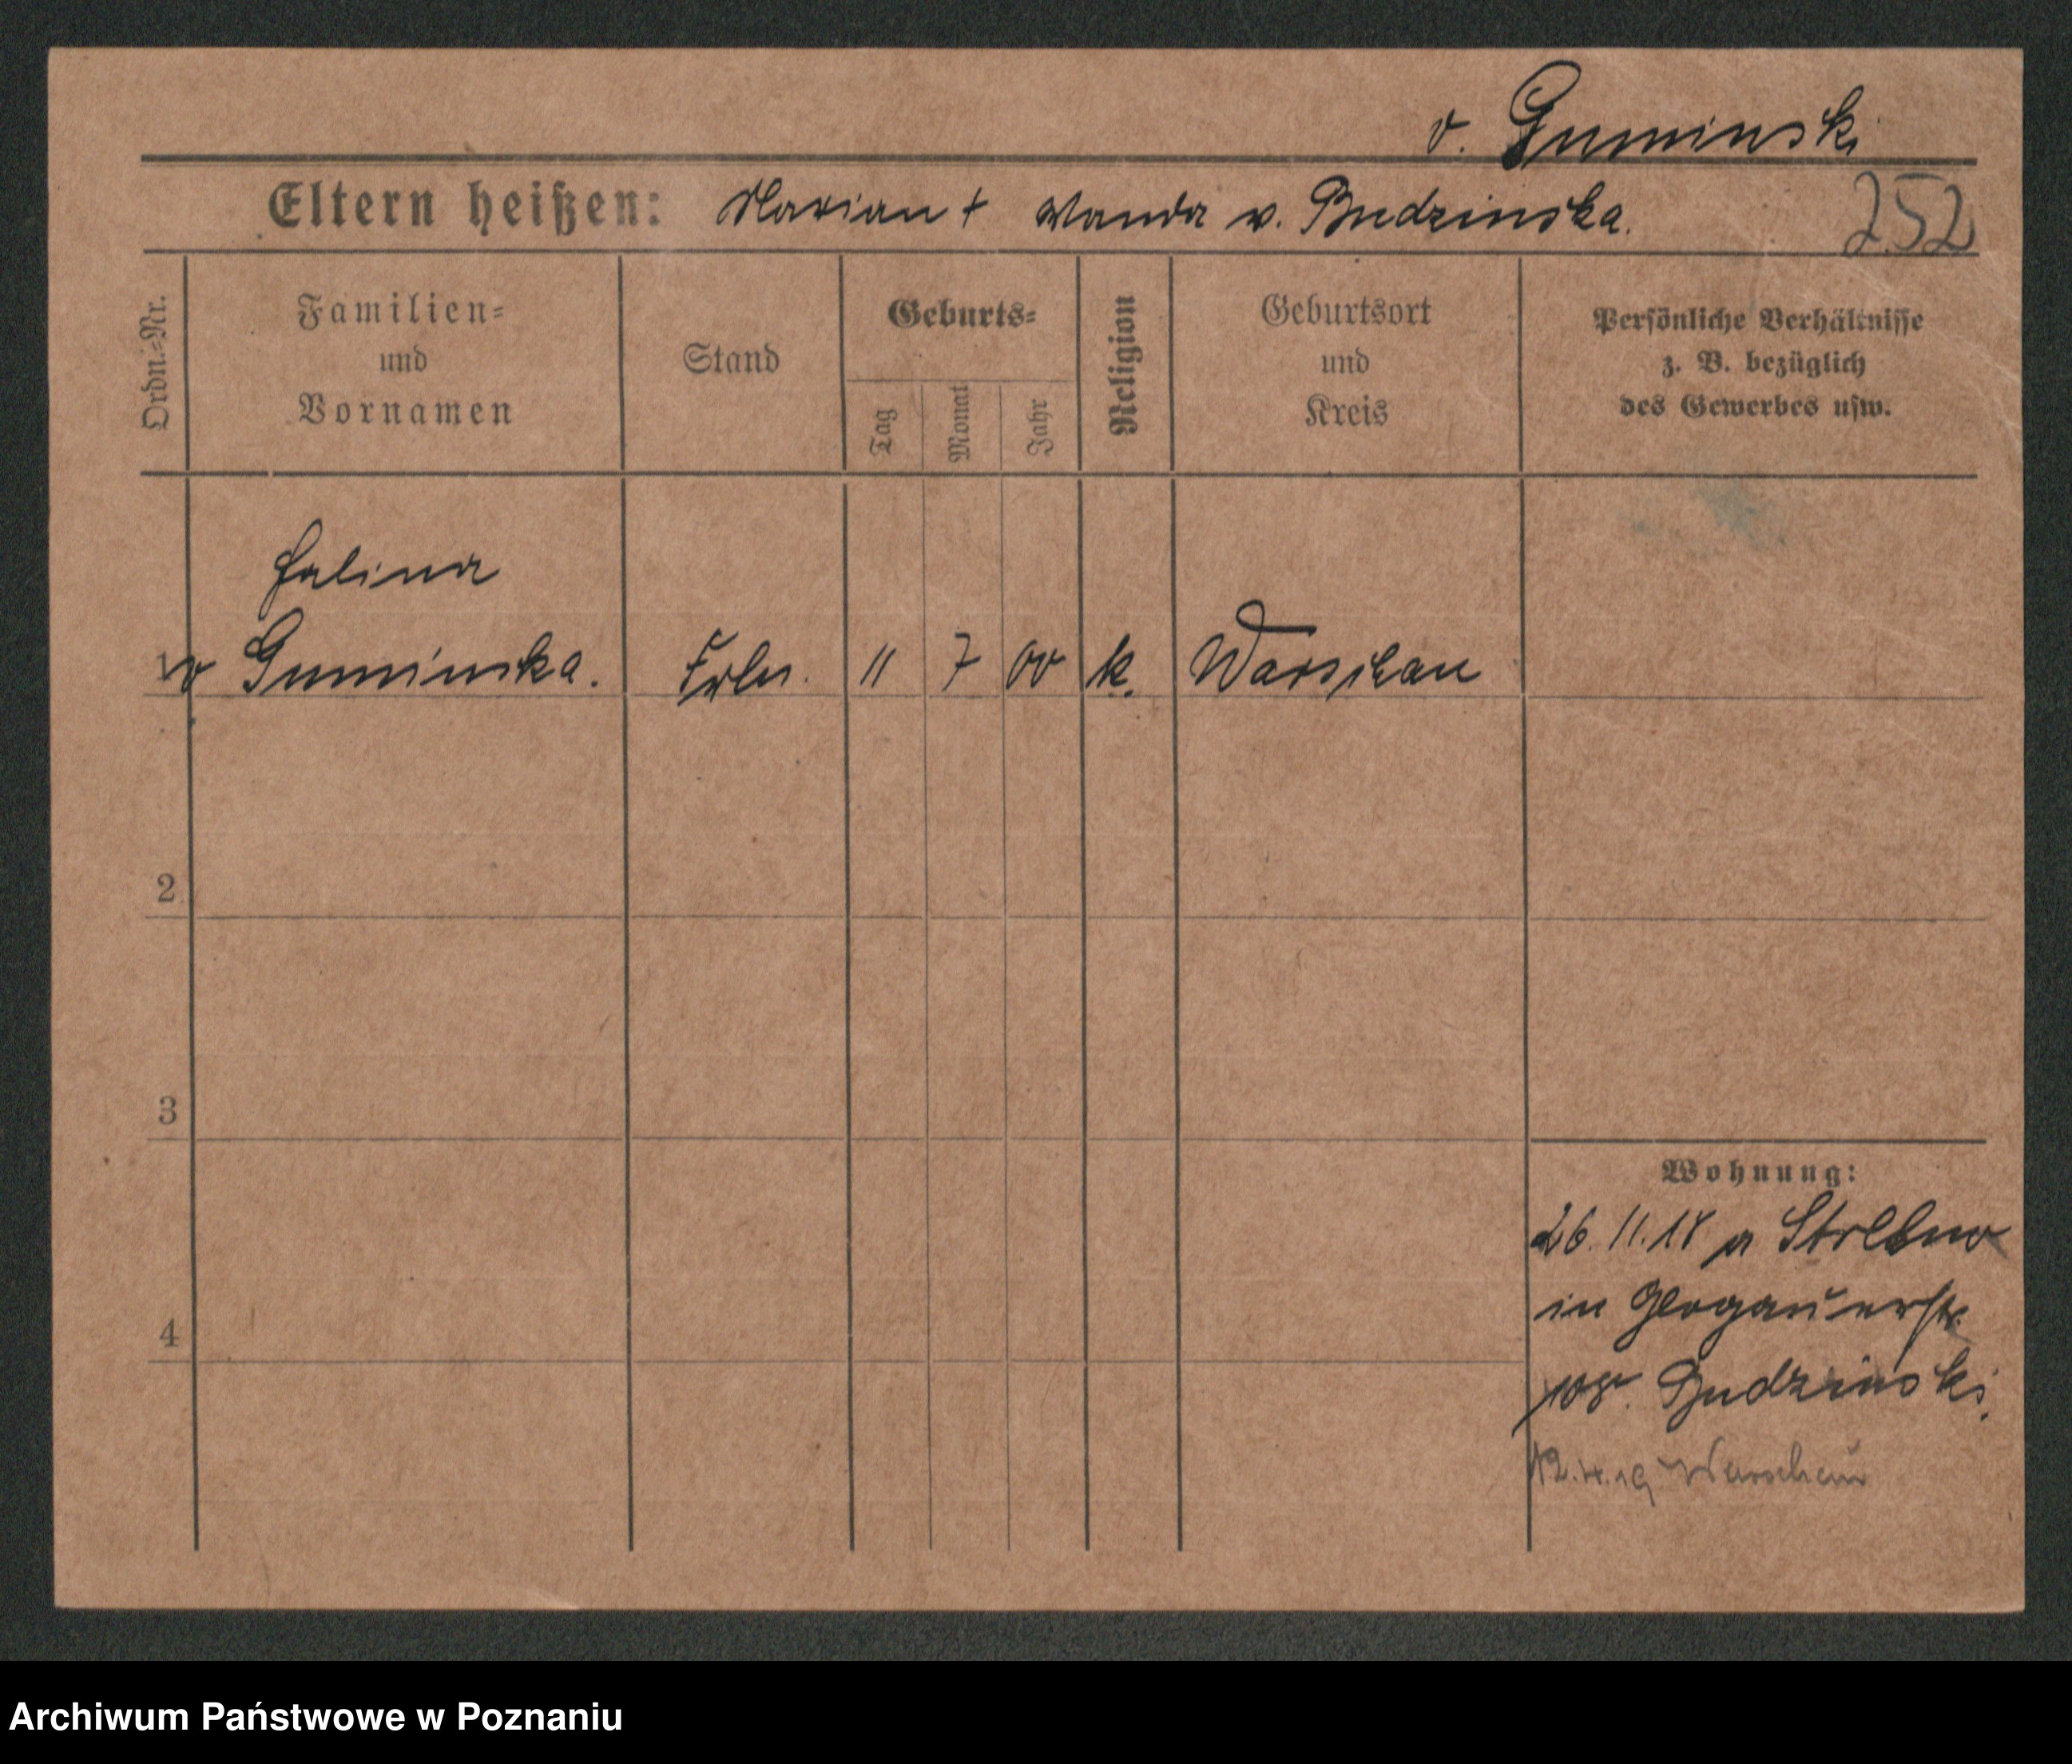 v. Guminski
Eltern heißen: Marian + Wanda v. Budzinska.
252
Ordn.-Nr.
Familien-
und
Vornamen
Stand
Geburts-
Tag
Monat
Jahr
Religion
Geburtsort
und
Kreis
Persönliche Verhältnisse
z. B. bezüglich
des Gewerbes usw.
Halina
1 v Guminska. Frln. 11 7 00 k. Warschau
2
3
4
Wohnung:
26.11.18 a Strelno
in Glogauerstr.
Budzinski.
12.4.19 Warschau
Archiwum Państwowe w Poznaniu